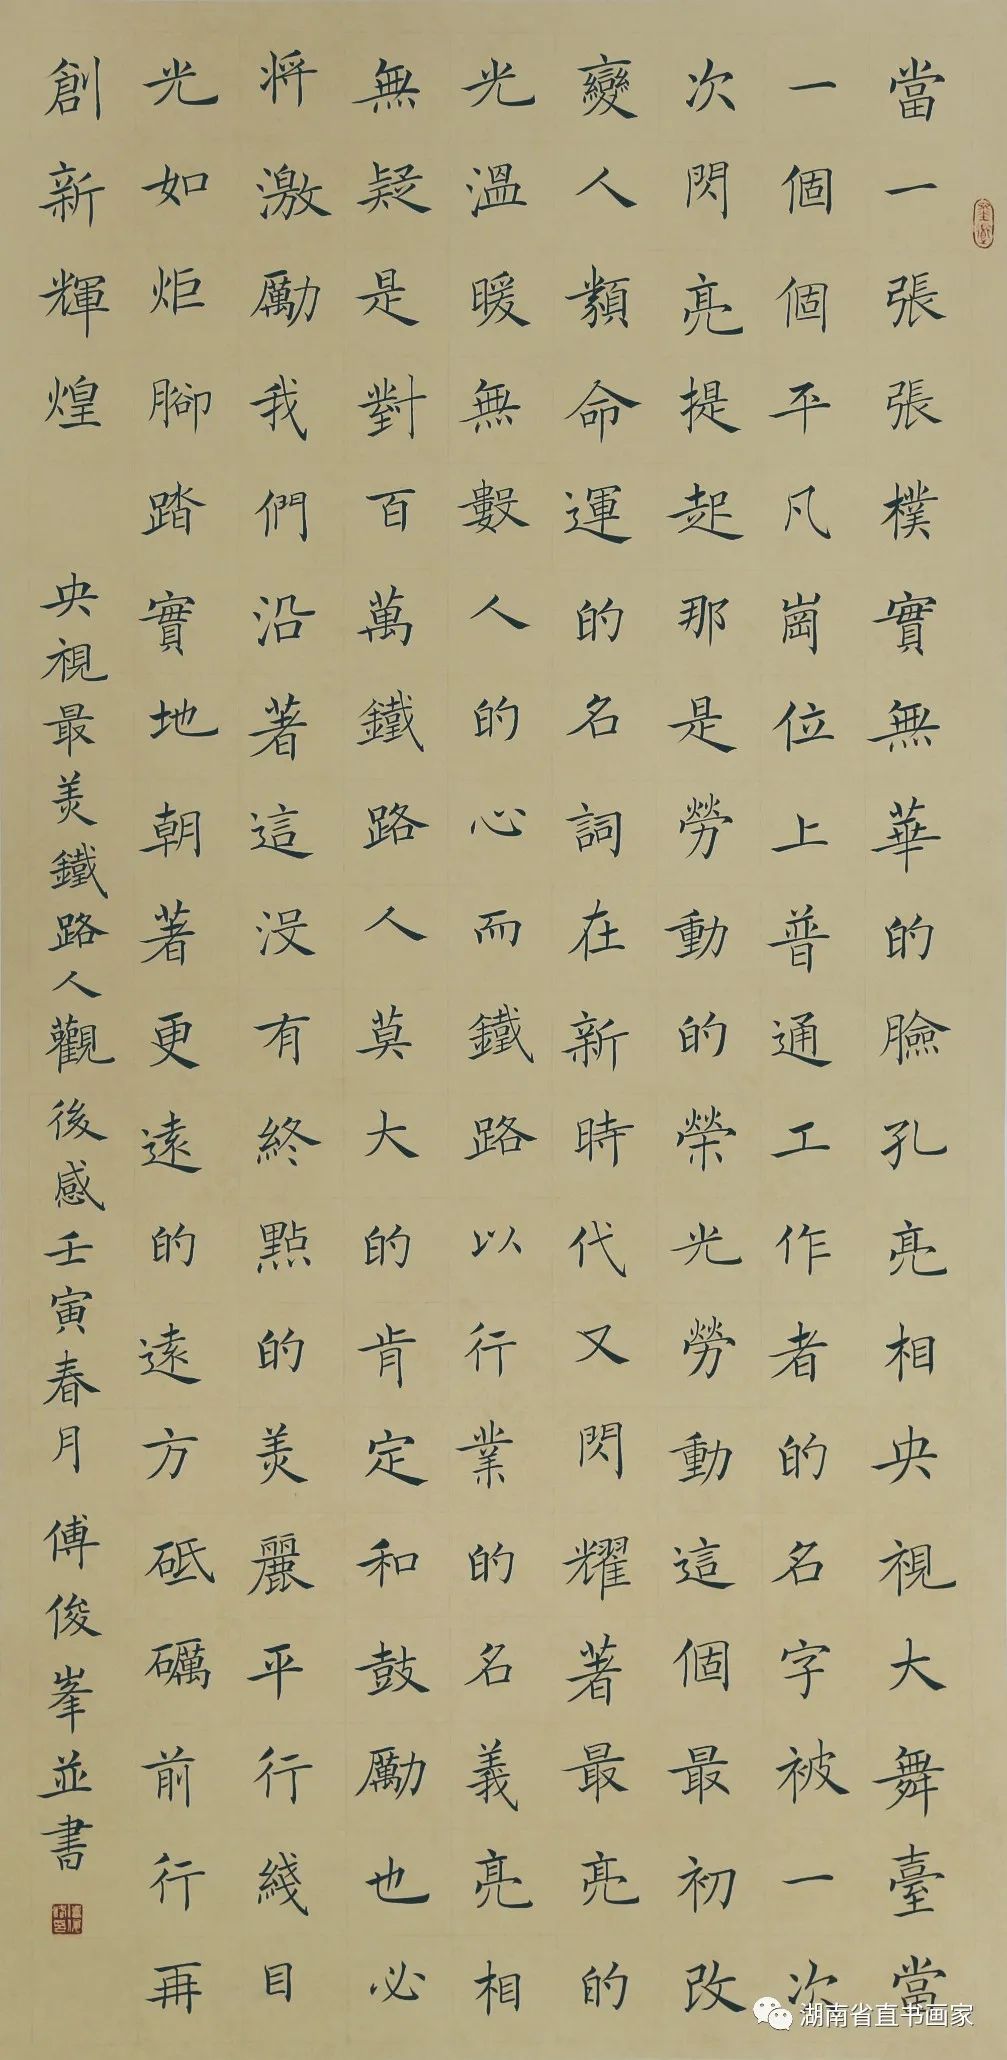 當一張張樸實無華的臉孔亮相央視大舞臺當
一個個平凡崗位上普通工作者的名字被一次
次閃亮提起那是勞動的榮光勞動這個最初改
變人類命運的名詞在新時代又閃耀著最亮的
光溫暖無數人的心而鐵路以行業的名義亮相
無疑是對百萬鐵路人莫大的肯定和鼓勵也必
将激勵我們沿著這没有終點的美麗平行綫目
光如炬腳踏實地朝著更遠的遠方砥礪前行再
創新輝煌
央視最美鐵路人觀後感壬寅春月 傅俊峯並書
湖南省直书画家